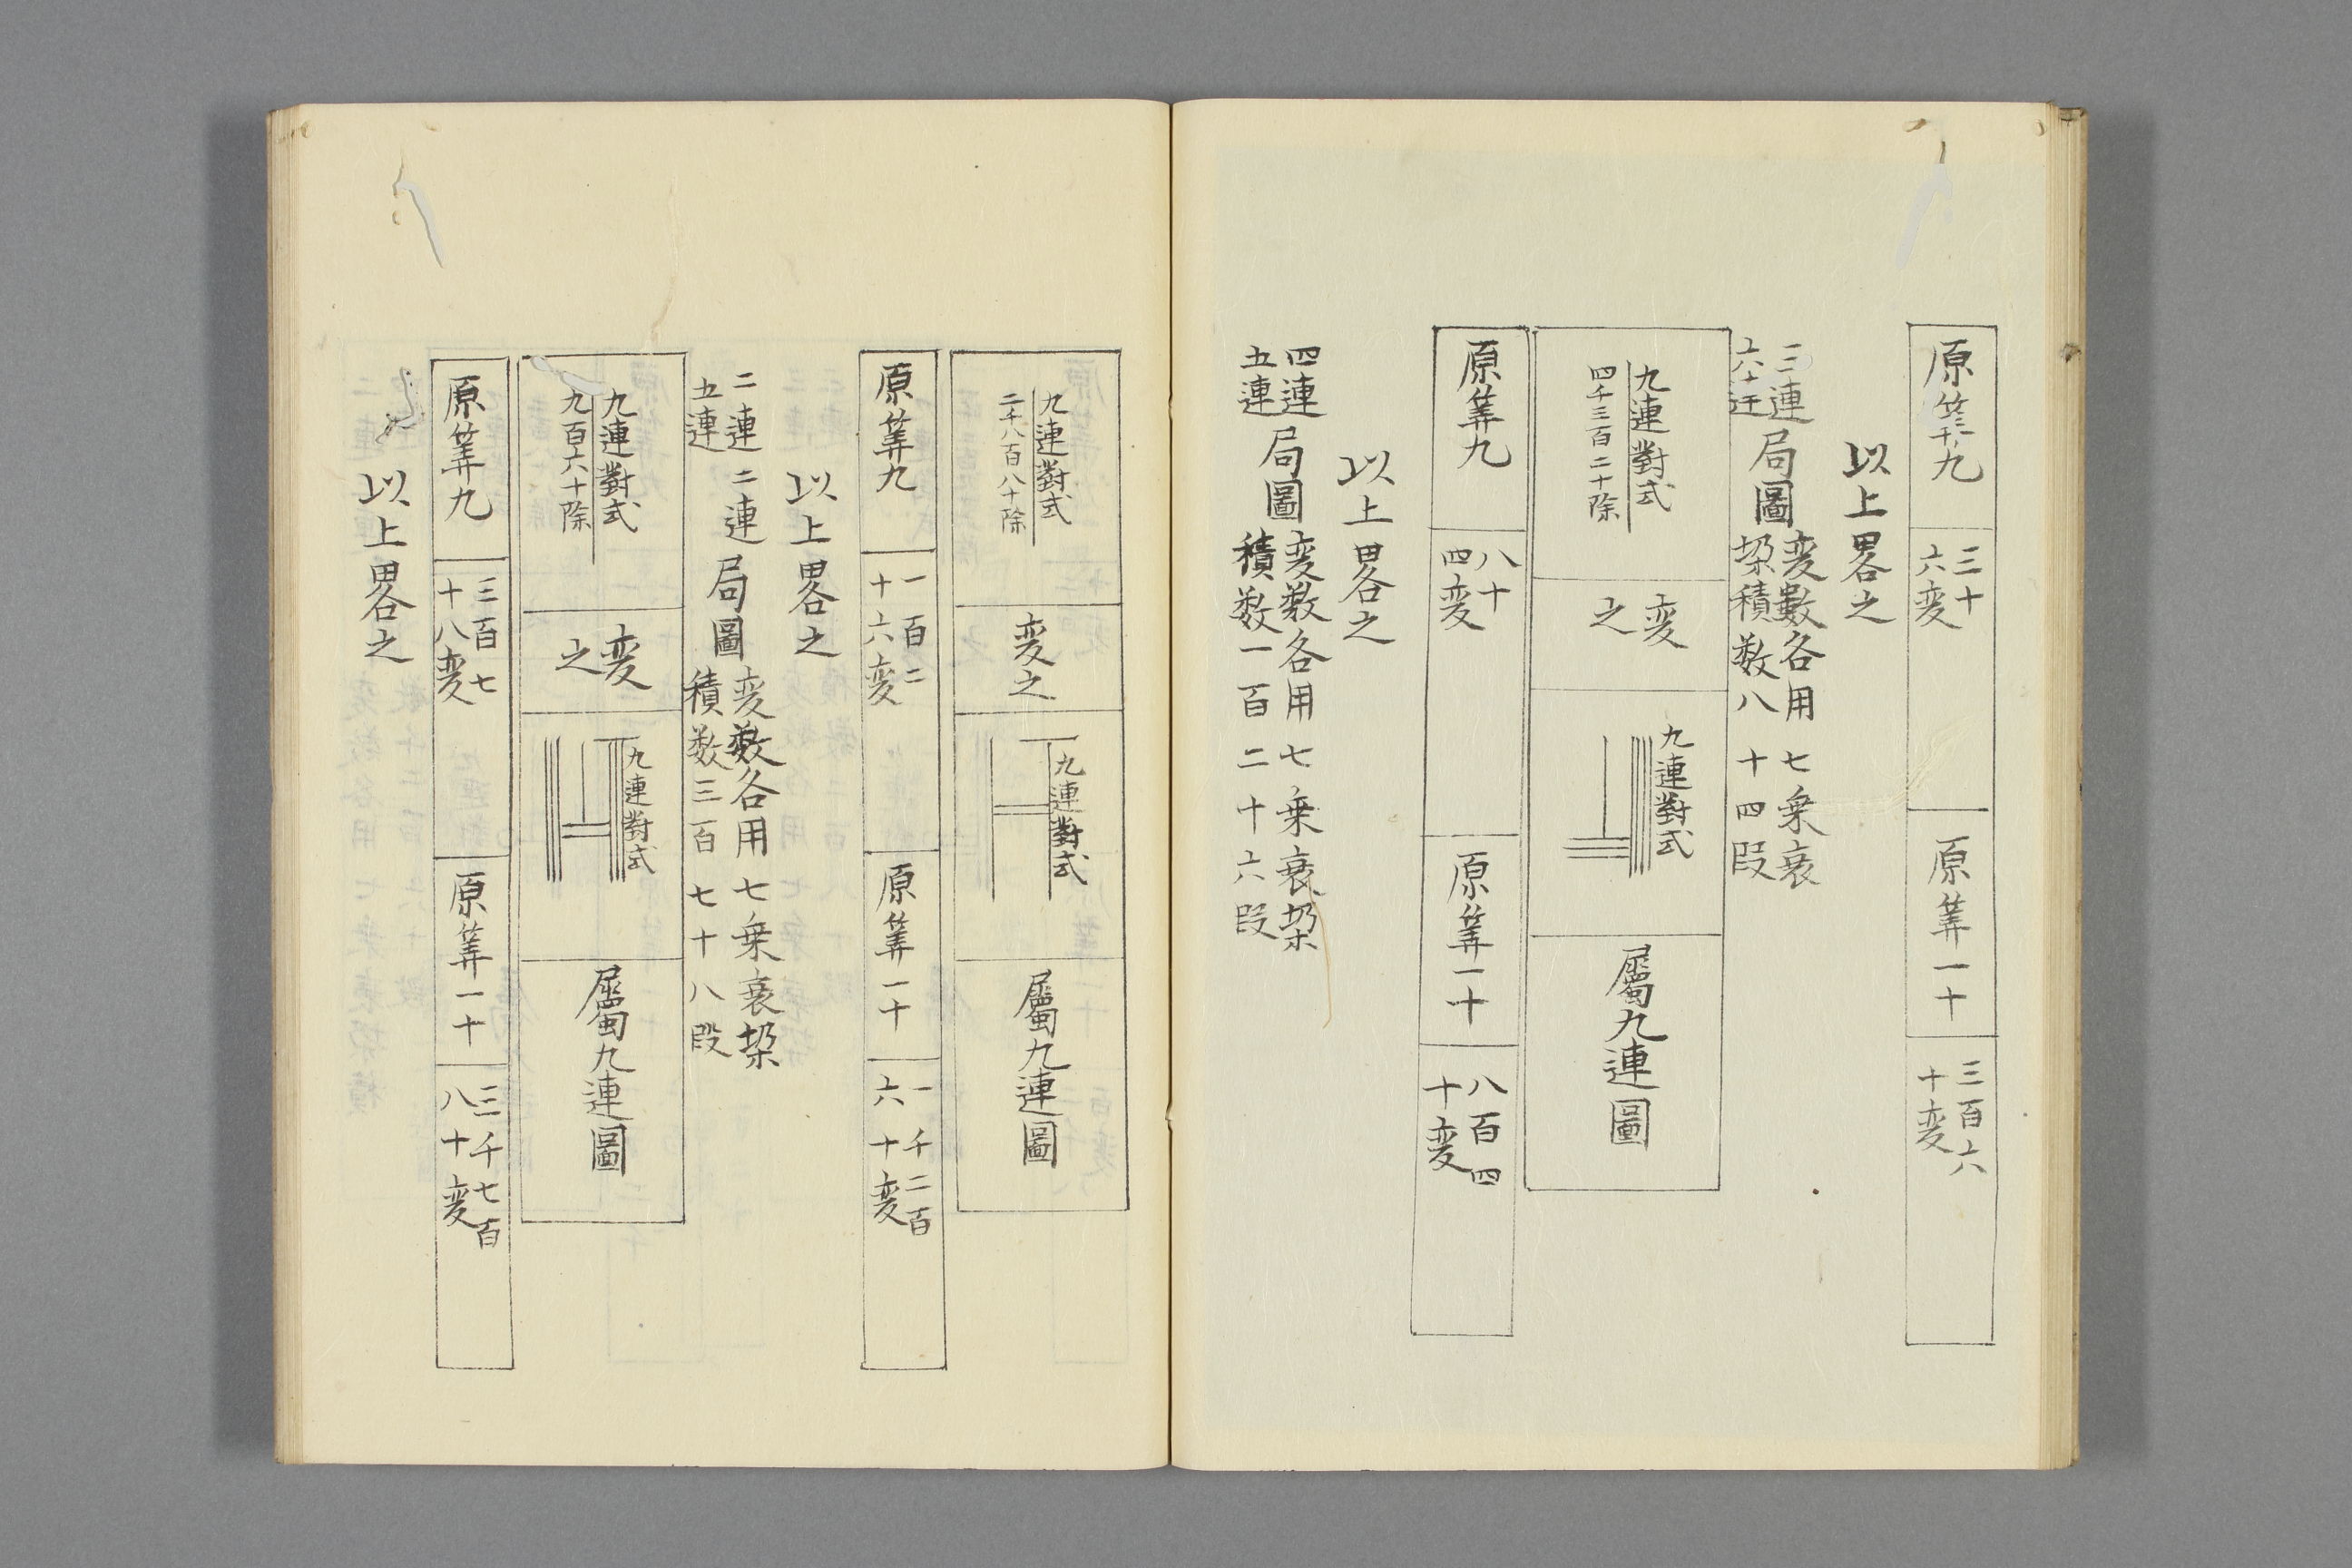 原筭九
三十
六変
原筭一十
三百六
十変
以上畧之
三連
六連
局圖
変數各用七乗衰
垜積数八十四段
九連對式
四千三百二十除
変
之
九連對式
屬九連圖
原筭九
八十
四変
原筭一十
八百四
十変
以上畧之
四連
五連
局圖
変数各用七乗衰垜
積数一百二十六段
九連對式
二千八百八十除
変之
九連對式
屬九連圖
原筭九
一百二
十六変
原筭一十
一千二百
六十変
以上畧之
二連
五連
二連局圖
変数各用七乗衰垜
積数三百七十八段
九連對式
九百六十除
変
之
九連對式
屬九連圖
原筭九
三百七
十八変
原筭一十
三千七百
八十変
以上畧之